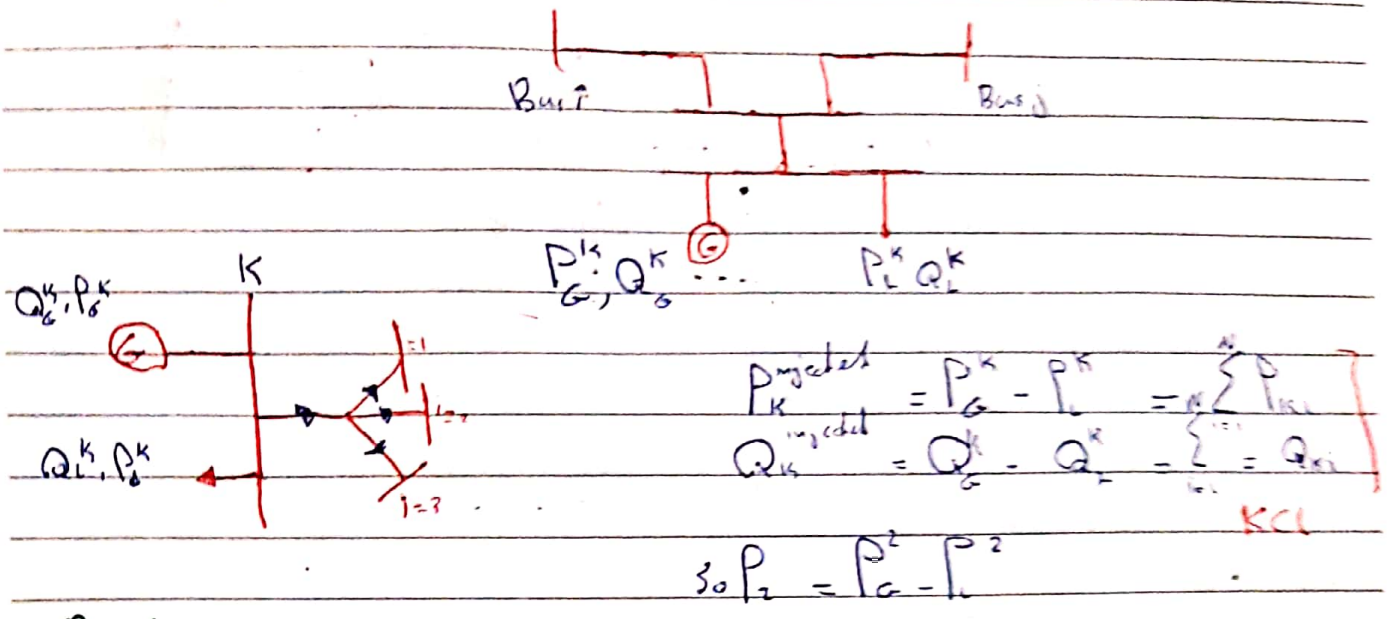 Bus i Bus j
P_G^K, Q_G^K ... P_L^K Q_L^K
K
Q_G^K, P_G^K
G
G
i=1
i=2
i=3
Q_L^K, P_L^K
P_K^injected = P_G^K - P_L^K = \sum_{i=1}^N P_Ki
Q_K^injected = Q_G^K - Q_L^K = \sum_{i=1}^N = Q_Ki
KCL
So P_2 = P_G^2 - P_L^2